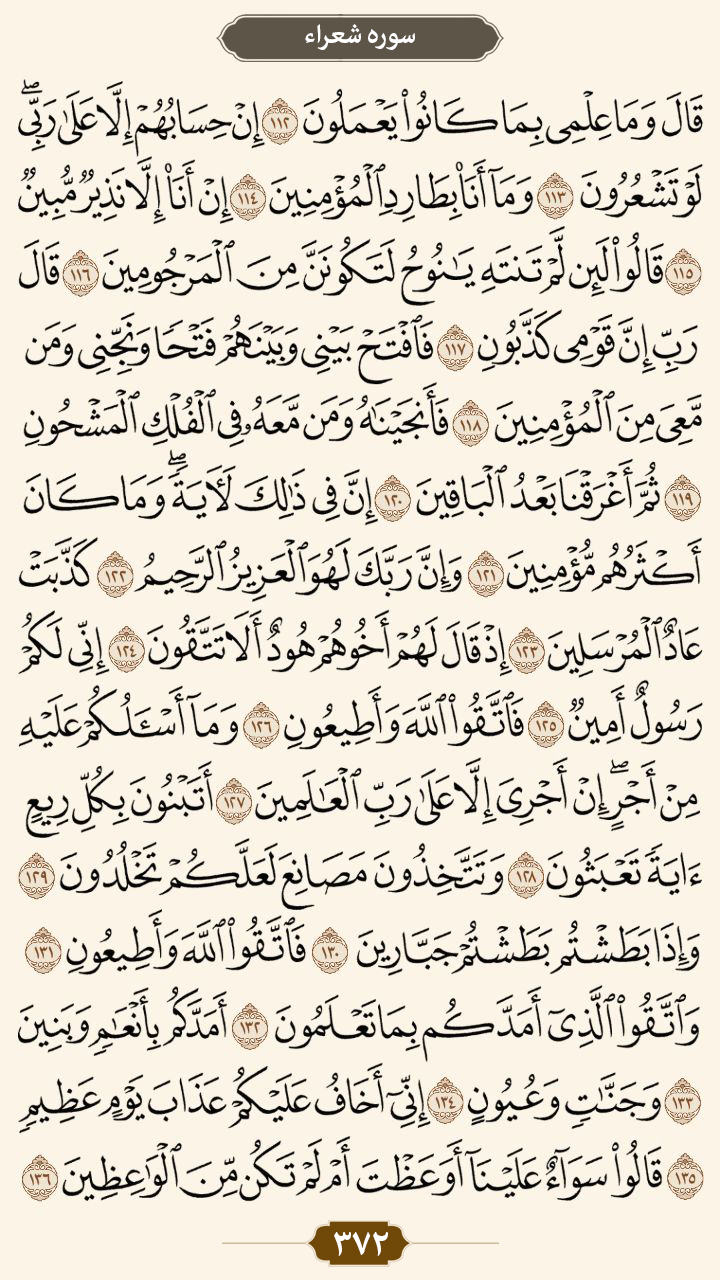 سوره شعراء
قَالَ وَمَا عِلْمِى بِمَا كَانُوا۟ يَعْمَلُونَ ١١٢ إِنْ حِسَابُهُمْ إِلَّا عَلَىٰ رَبِّى ۖ
لَوْ تَشْعُرُونَ ١١٣ وَمَآ أَنَا۠ بِطَارِدِ ٱلْمُؤْمِنِينَ ١١٤ إِنْ أَنَا۠ إِلَّا نَذِيرٌ مُّبِينٌ
١١٥ قَالُوا۟ لَئِن لَّمْ تَنتَهِ يَـٰنُوحُ لَتَكُونَنَّ مِنَ ٱلْمَرْجُومِينَ ١١٦ قَالَ
رَبِّ إِنَّ قَوْمِى كَذَّبُونِ ١١٧ فَٱفْتَحْ بَيْنِى وَبَيْنَهُمْ فَتْحًا وَنَجِّنِى وَمَن
مَّعِىَ مِنَ ٱلْمُؤْمِنِينَ ١١٨ فَأَنجَيْنَـٰهُ وَمَن مَّعَهُۥ فِى ٱلْفُلْكِ ٱلْمَشْحُونِ
١١٩ ثُمَّ أَغْرَقْنَا بَعْدُ ٱلْبَاقِينَ ١٢٠ إِنَّ فِى ذَٰلِكَ لَـَٔايَةً ۖ وَمَا كَانَ
أَكْثَرُهُم مُّؤْمِنِينَ ١٢١ وَإِنَّ رَبَّكَ لَهُوَ ٱلْعَزِيزُ ٱلرَّحِيمُ ١٢٢ كَذَّبَتْ
عَادٌ ٱلْمُرْسَلِينَ ١٢٣ إِذْ قَالَ لَهُمْ أَخُوهُمْ هُودٌ أَلَا تَتَّقُونَ ١٢٤ إِنِّى لَكُمْ
رَسُولٌ أَمِينٌ ١٢٥ فَٱتَّقُوا۟ ٱللَّهَ وَأَطِيعُونِ ١٢٦ وَمَآ أَسْـَٔلُكُمْ عَلَيْهِ
مِنْ أَجْرٍ ۖ إِنْ أَجْرِىَ إِلَّا عَلَىٰ رَبِّ ٱلْعَـٰلَمِينَ ١٢٧ أَتَبْنُونَ بِكُلِّ رِيعٍ
ءَايَةً تَعْبَثُونَ ١٢٨ وَتَتَّخِذُونَ مَصَانِعَ لَعَلَّكُمْ تَخْلُدُونَ ١٢٩
وَإِذَا بَطَشْتُم بَطَشْتُمْ جَبَّارِينَ ١٣٠ فَٱتَّقُوا۟ ٱللَّهَ وَأَطِيعُونِ ١٣١
وَٱتَّقُوا۟ ٱلَّذِىٓ أَمَدَّكُم بِمَا تَعْلَمُونَ ١٣٢ أَمَدَّكُم بِأَنْعَـٰمٍ وَبَنِينَ
١٣٣ وَجَنَّـٰتٍ وَعُيُونٍ ١٣٤ إِنِّىٓ أَخَافُ عَلَيْكُمْ عَذَابَ يَوْمٍ عَظِيمٍ
١٣٥ قَالُوا۟ سَوَآءٌ عَلَيْنَآ أَوَعَظْتَ أَمْ لَمْ تَكُن مِّنَ ٱلْوَٰعِظِينَ ١٣٦
٣٧٢